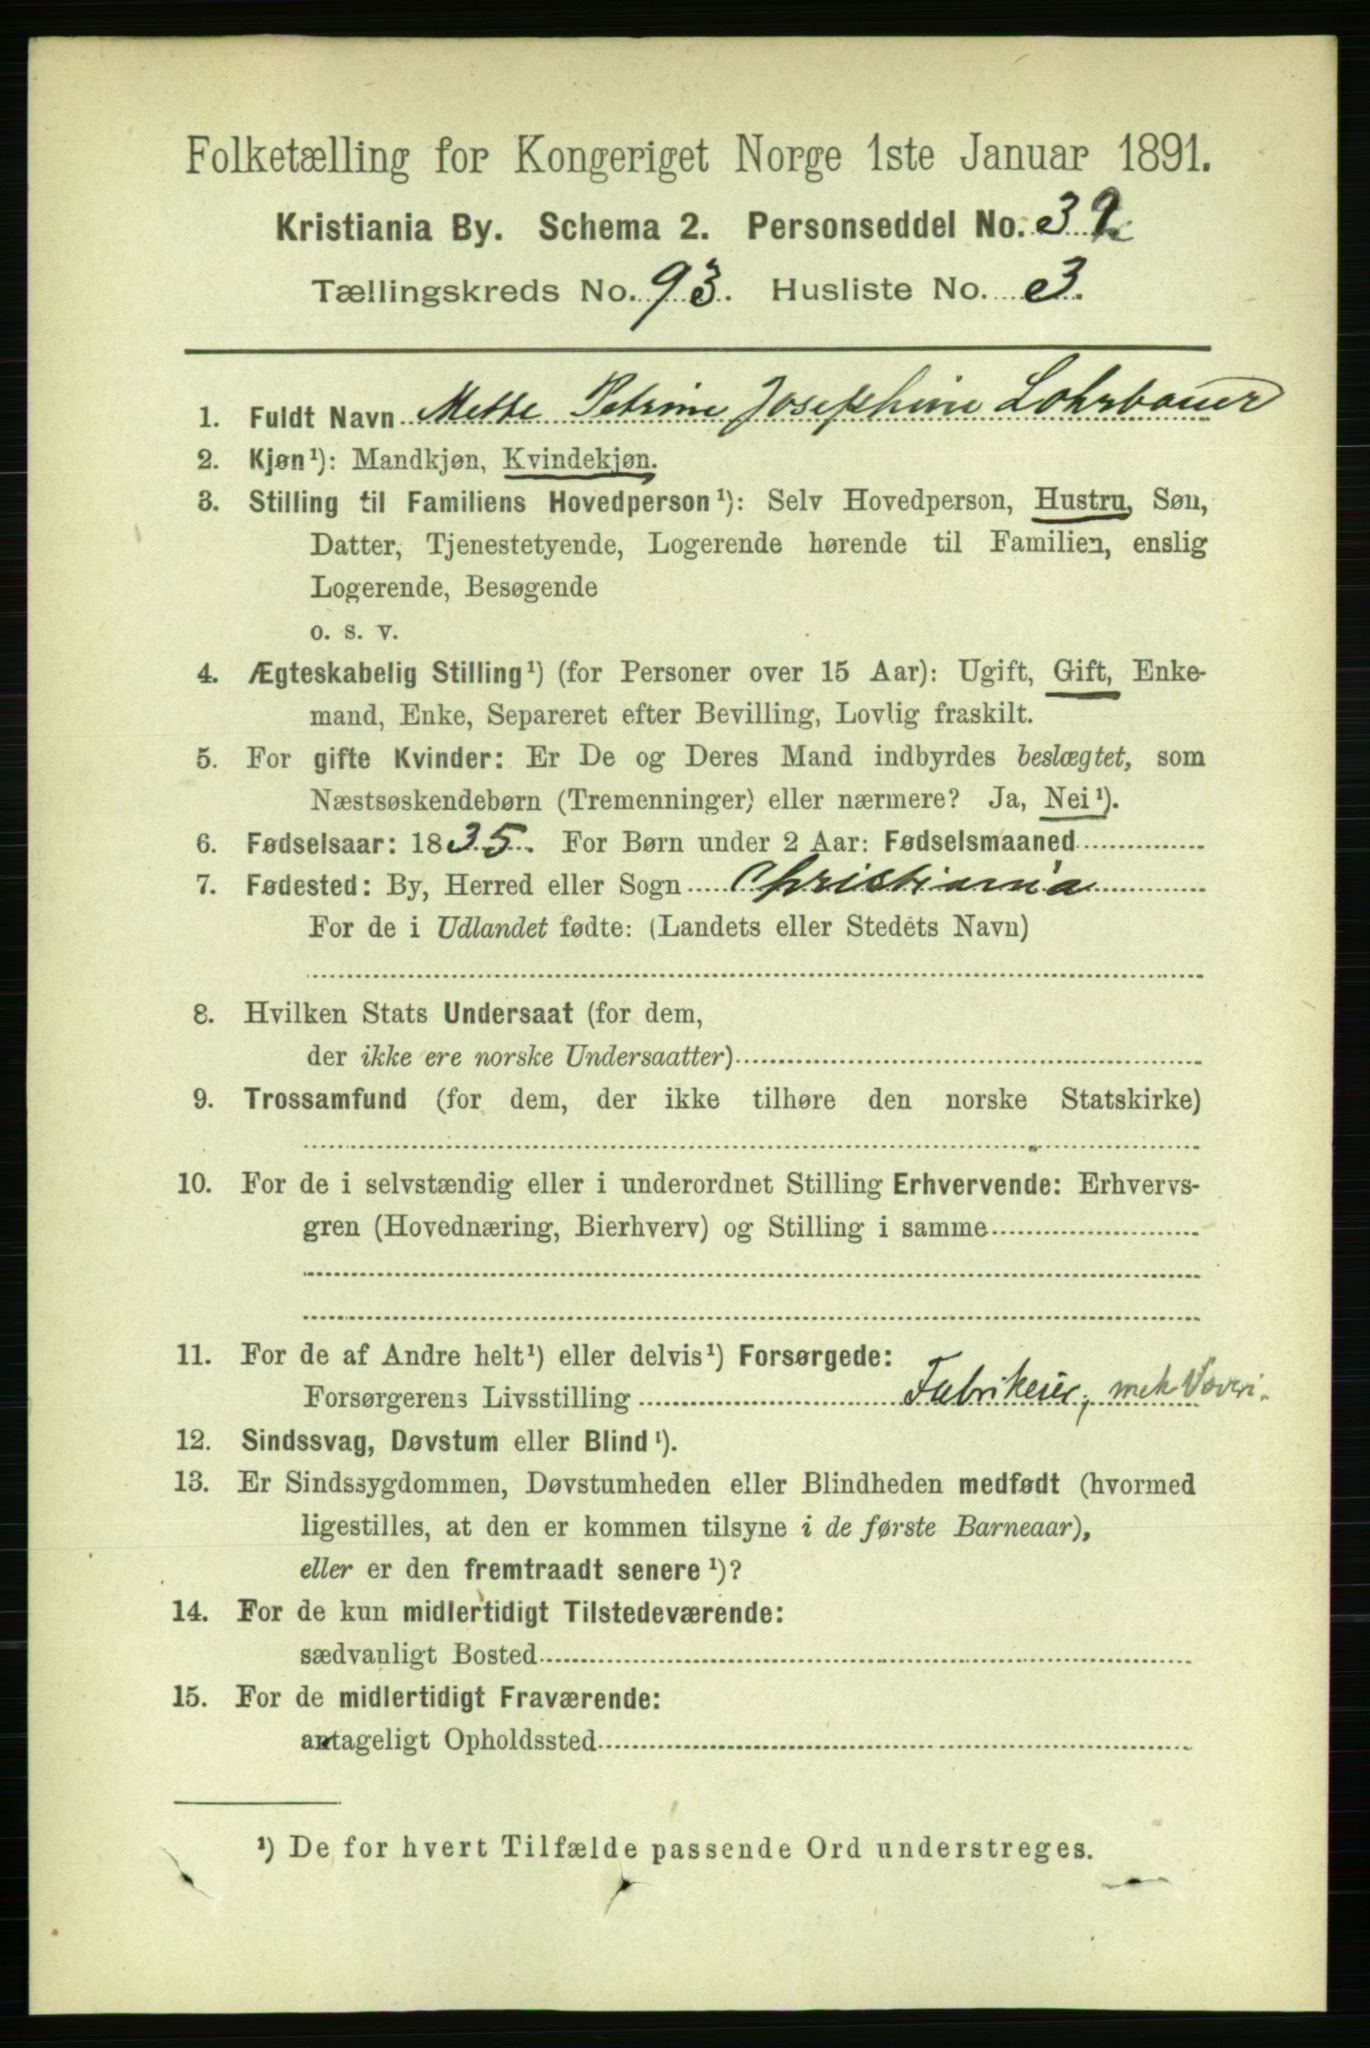 Folketælling for Kongeriget Norge 1ste Januar 1891.
Kristiania By. Schema 2. Personseddel No. 32
Tællingskreds No. 93. Husliste No. 3.
1. Fuldt Navn Mette Petrine Josephine Lohrbauer
2. Kjøn¹): Mandkjøn, Kvindekjøn.
3. Stilling til Familiens Hovedperson¹): Selv Hovedperson, Hustru, Søn,
Datter, Tjenestetyende, Logerende hørende til Familien, enslig
Logerende, Besøgende
o. s. v.
4. Ægteskabelig Stilling¹) (for Personer over 15 Aar): Ugift, Gift, Enke-
mand, Enke, Separeret efter Bevilling, Lovlig fraskilt.
5. For gifte Kvinder: Er De og Deres Mand indbyrdes beslægtet, som
Næstsøskendebørn (Tremenninger) eller nærmere? Ja, Nei¹).
6. Fødselsaar: 1835. For Børn under 2 Aar: Fødselsmaaned
7. Fødested: By, Herred eller Sogn Christiania
For de i Udlandet fødte: (Landets eller Stedets Navn)
8. Hvilken Stats Undersaat (for dem,
der ikke ere norske Undersaatter)
9. Trossamfund (for dem, der ikke tilhøre den norske Statskirke)
10. For de i selvstændig eller i underordnet Stilling Erhvervende: Erhvervs-
gren (Hovednæring, Bierhverv) og Stilling i samme
11. For de af Andre helt¹) eller delvis¹) Forsørgede:
Forsørgerens Livsstilling Fabrikeier, mek Væveri.
12. Sindssvag, Døvstum eller Blind¹).
13. Er Sindssygdommen, Døvstumheden eller Blindheden medfødt (hvormed
ligestilles, at den er kommen tilsyne i de første Barneaar),
eller er den fremtraadt senere¹)?
14. For de kun midlertidigt Tilstedeværende:
sædvanligt Bosted
15. For de midlertidigt Fraværende:
antageligt Opholdssted
¹) De for hvert Tilfælde passende Ord understreges.